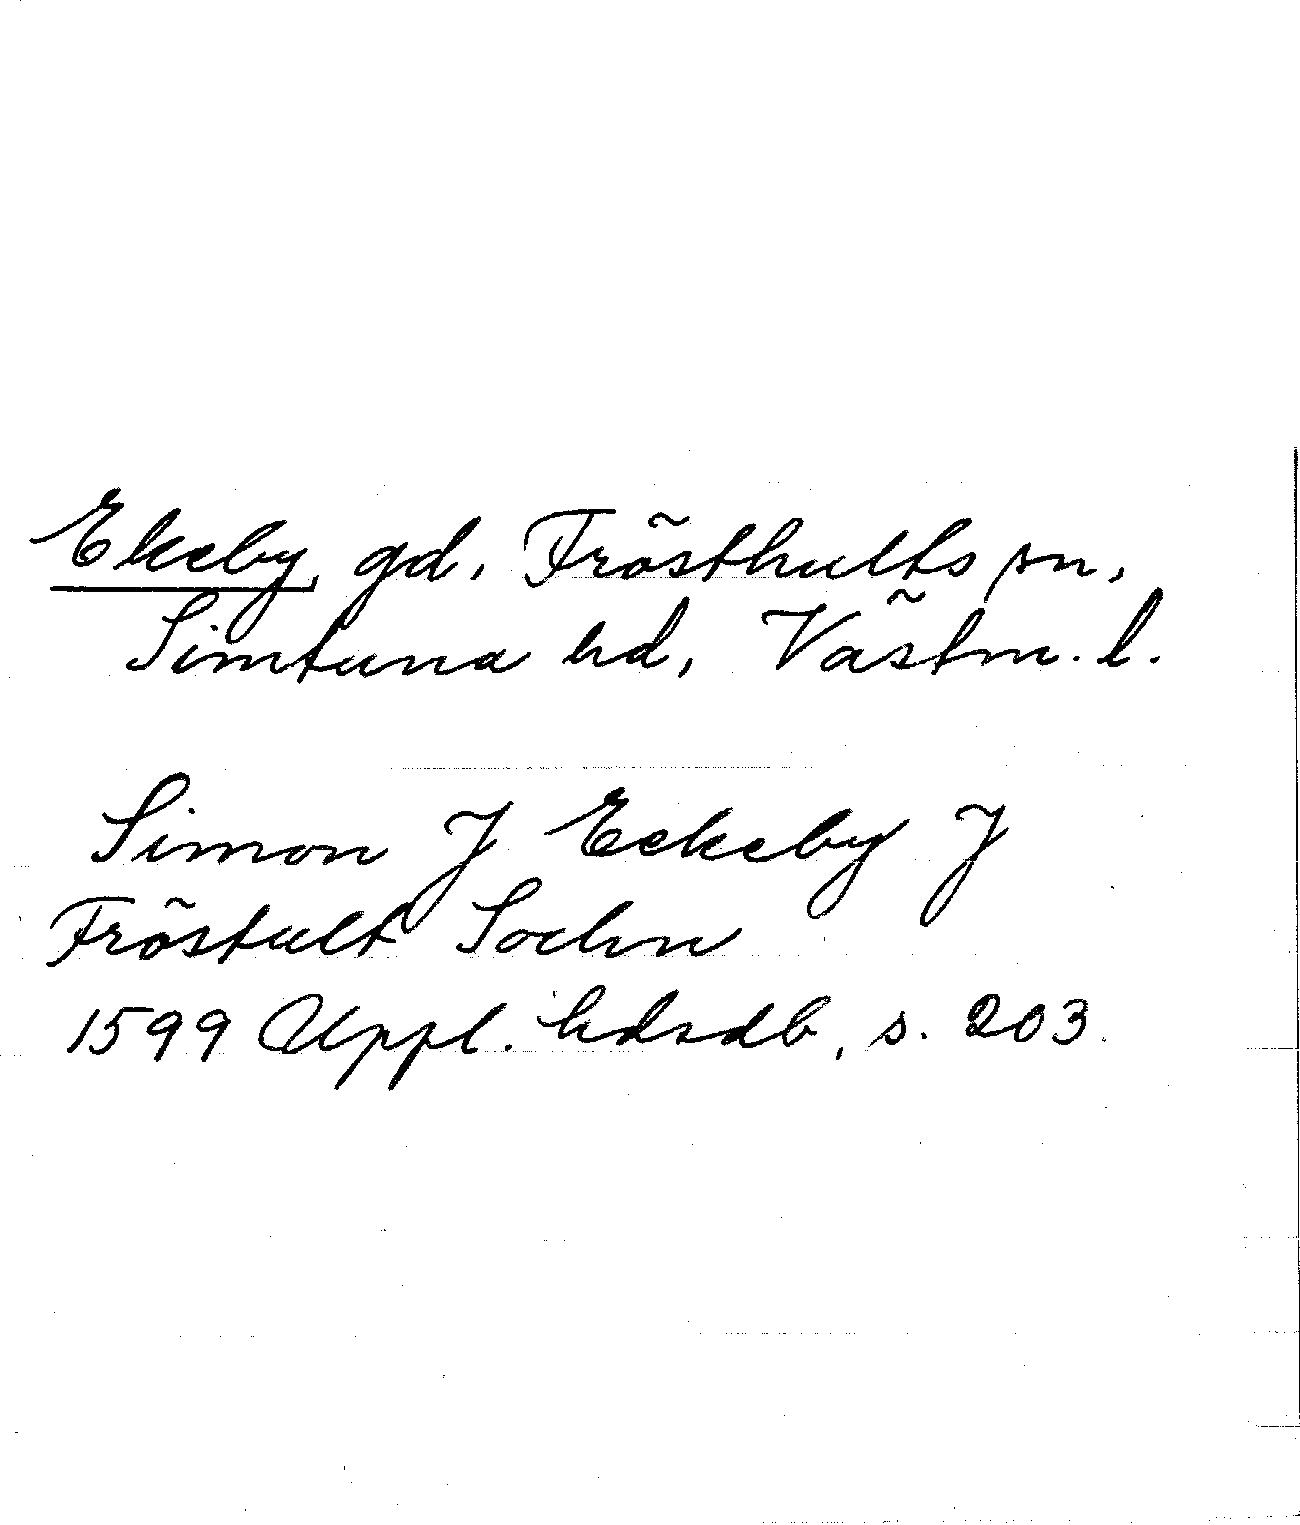 Ekeby, gd, Frösthults sn,
Simtuna hd, Västm. l.
Simon J Eekeby J
Fröstult Sochn
1599 Uppl. hdsdb, s. 203.